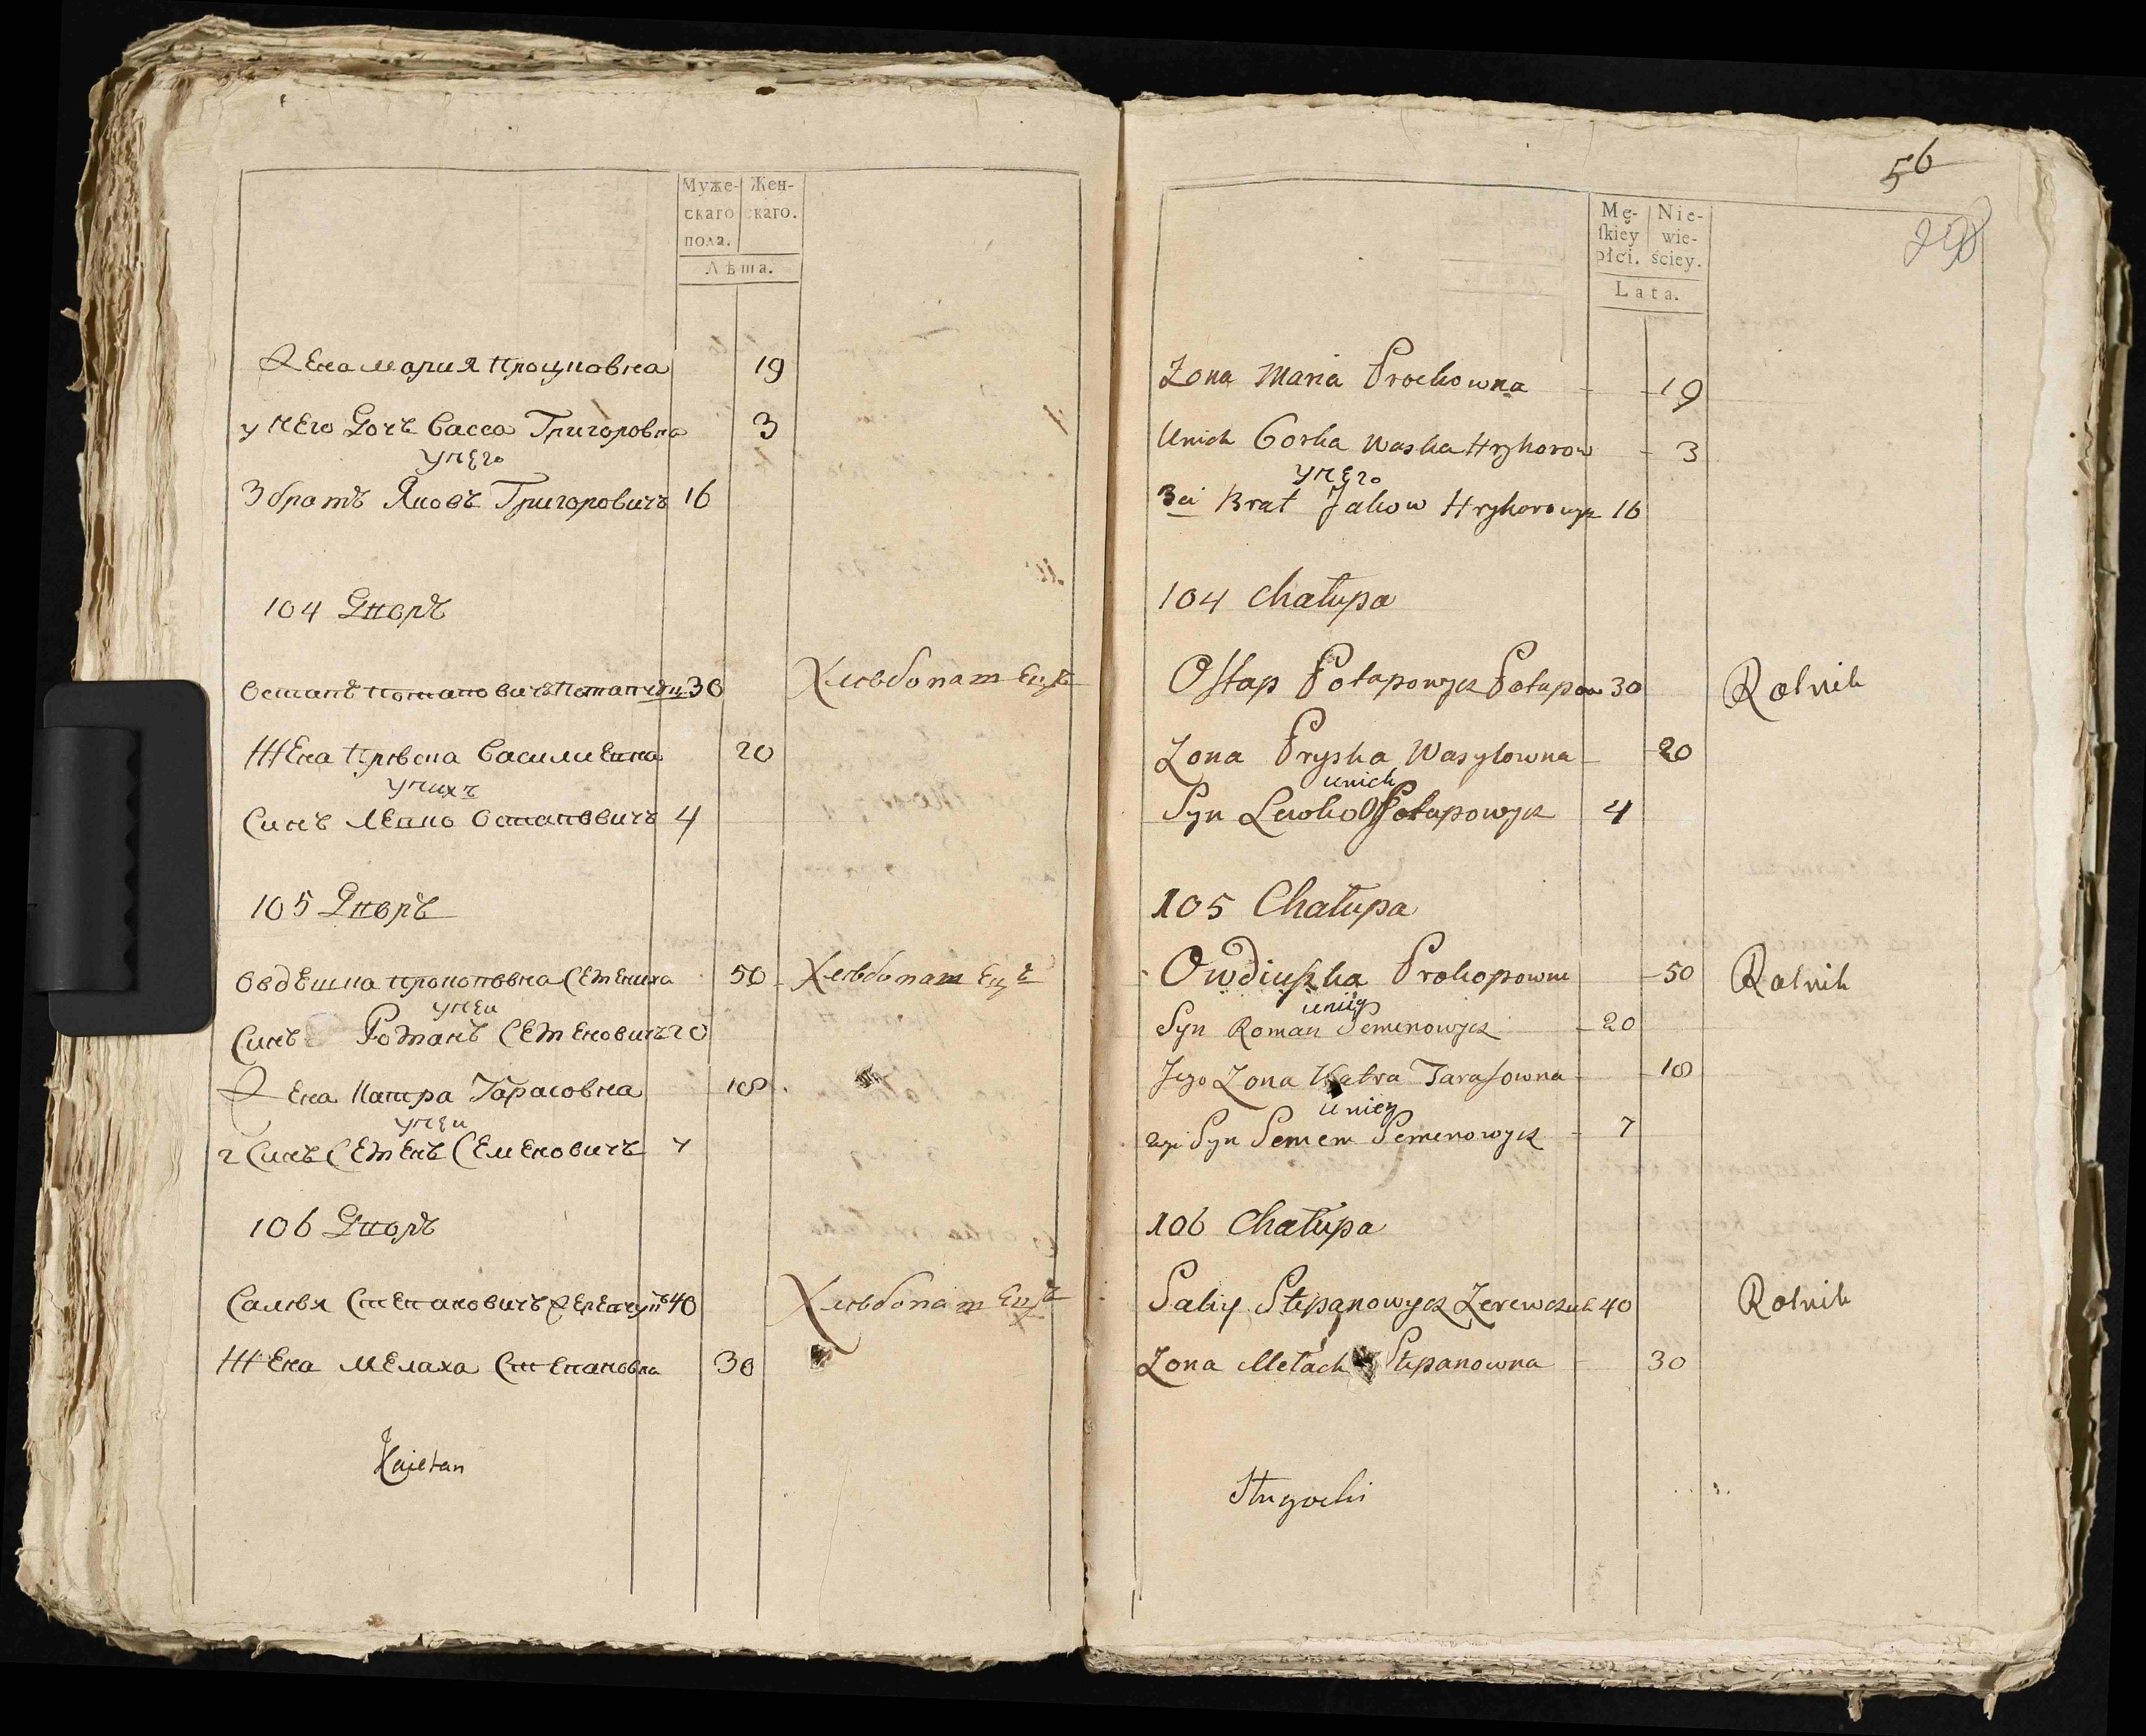 Муже- Жен-
скаго скаго.
пола.
Лѣта.
Жена Мария Процковна 19
у него Дочъ Васса Григоровна 3
унего
3 братъ Яковъ Григоровичъ 16
104 Дворъ
Остапъ Потаповичъ 30 Хлѣбопашецъ
Жена Прѣска Василиевна 20
уних
Синъ Левко Остаповичъ 4
105 Дворъ
Овдешка Прокоповна Семениха 50 Хлѣбопашецъ
унеи
Синъ Романъ Семеновичъ 20
Жена Катра Тарасовна 18
унеи
2 Синъ Семенъ Семеновичъ 7
106 Дворъ
Салѣя Степановичъ Жеревчукъ 40 Хлѣбопашецъ
Жена Мелаха Степановна 30
Kaietan
56
Mę- Nie-
ſkiey wie-
płci. ściey.
Lata.
Zona Maria Prockowna 19
Unich Corka Waska Hryhorow 3
унего
3ci Brat Jakow Hryhorowycz 16
104 Chałupa
Ostap Potapowycz Potapow 30 Rolnik
Zona Pryska Wasylowna 20
unich
Syn Lewko Ostapowycz 4
105 Chałupa
Owdiuszka Prokopowna 50 Rolnik
uniey
Syn Roman Semenowycz 20
Jego Zona Katra Tarasowna 18
uniey
2gi Syn Semem Semenowycz 7
106 Chałupa
Saliy Stepanowycz Zerewczuk 40 Rolnik
Zona Mełach Stepanowna 30